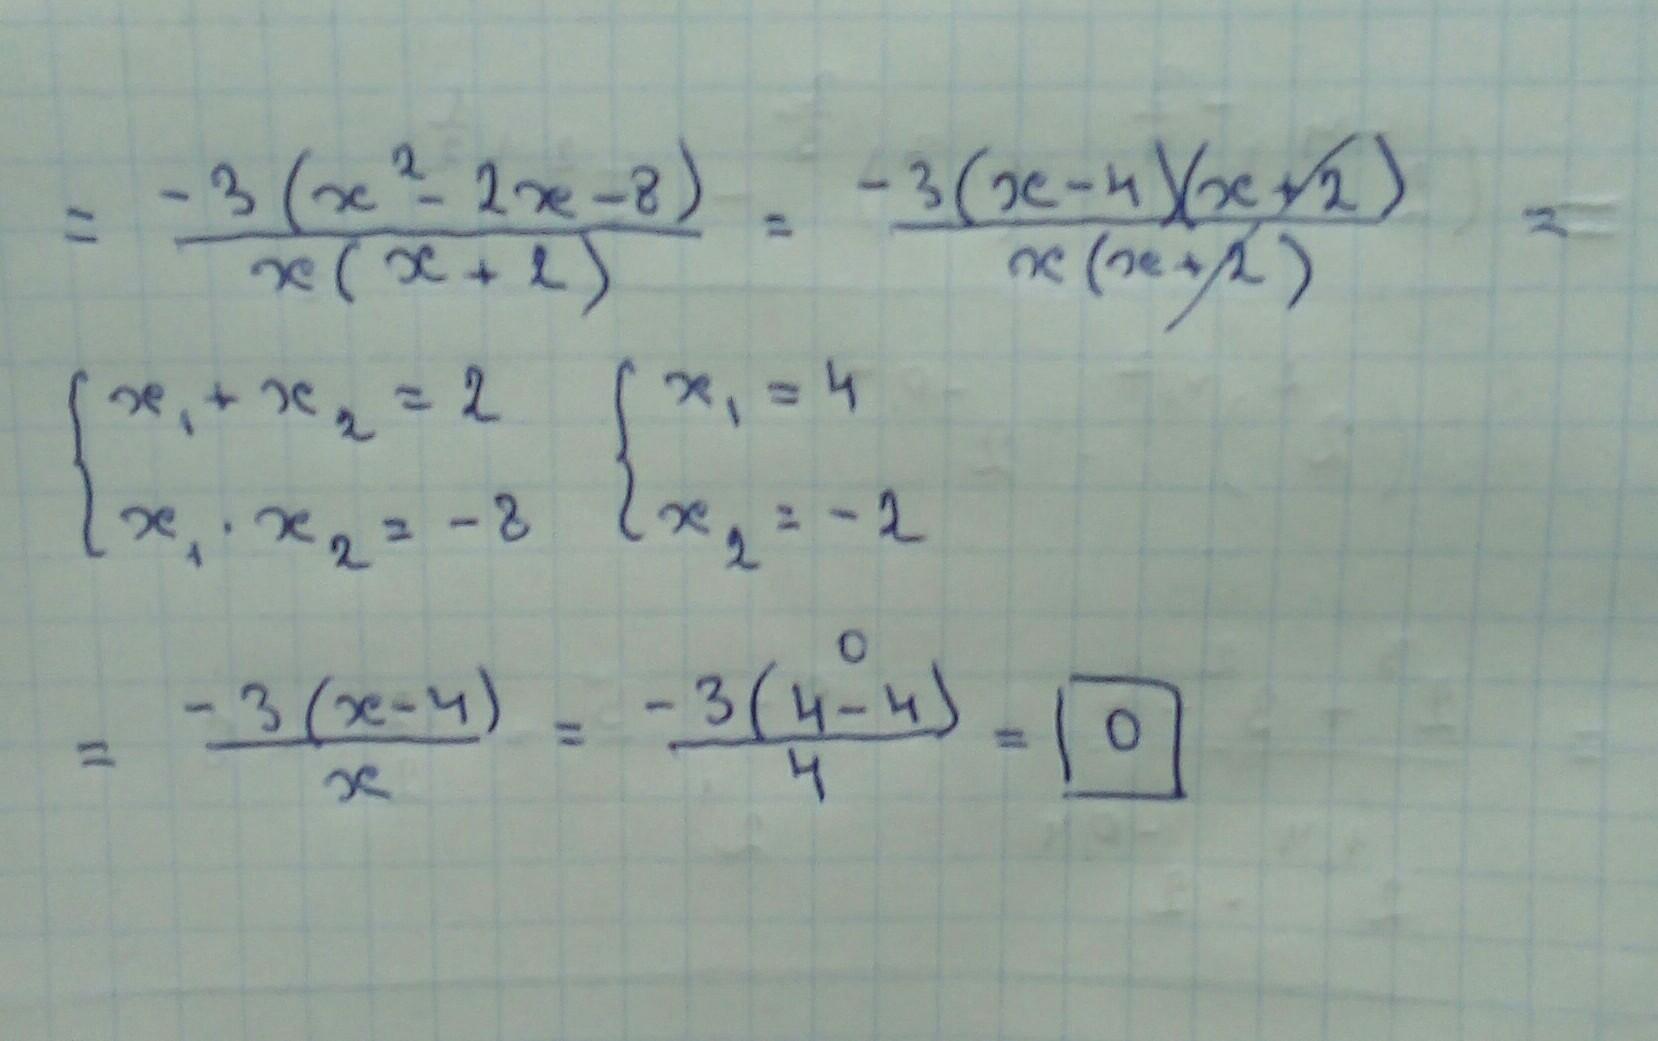 = -3(x²-2x-8) / x(x+2) = -3(x-4)(x+2) / x(x+2) =
{ x₁+x₂=2 { x₁=4
x₁·x₂=-8 x₂=-2
0
= -3(x-4) / x = -3(4-4) / 4 = 0